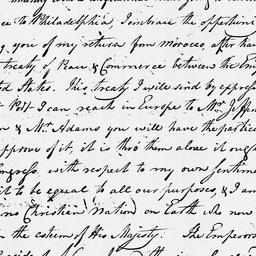 ce to Philadelphia, I embrace the opportuni
g you of my return from Morocco, after hav
treaty of Peace & Commerce between the Em
ed States. This treaty I will send by express
Port I can reach in Europe to Mr. Jeffer
n & Mr. Adams you will have the partic
approve of it, it is thro them alone it ough
ongress, with respect to my own sentime
it to be equal to all our purposes, & I am
ns (Christian Nation) on Earth who now
n the esteem of His Majesty. The Emperors